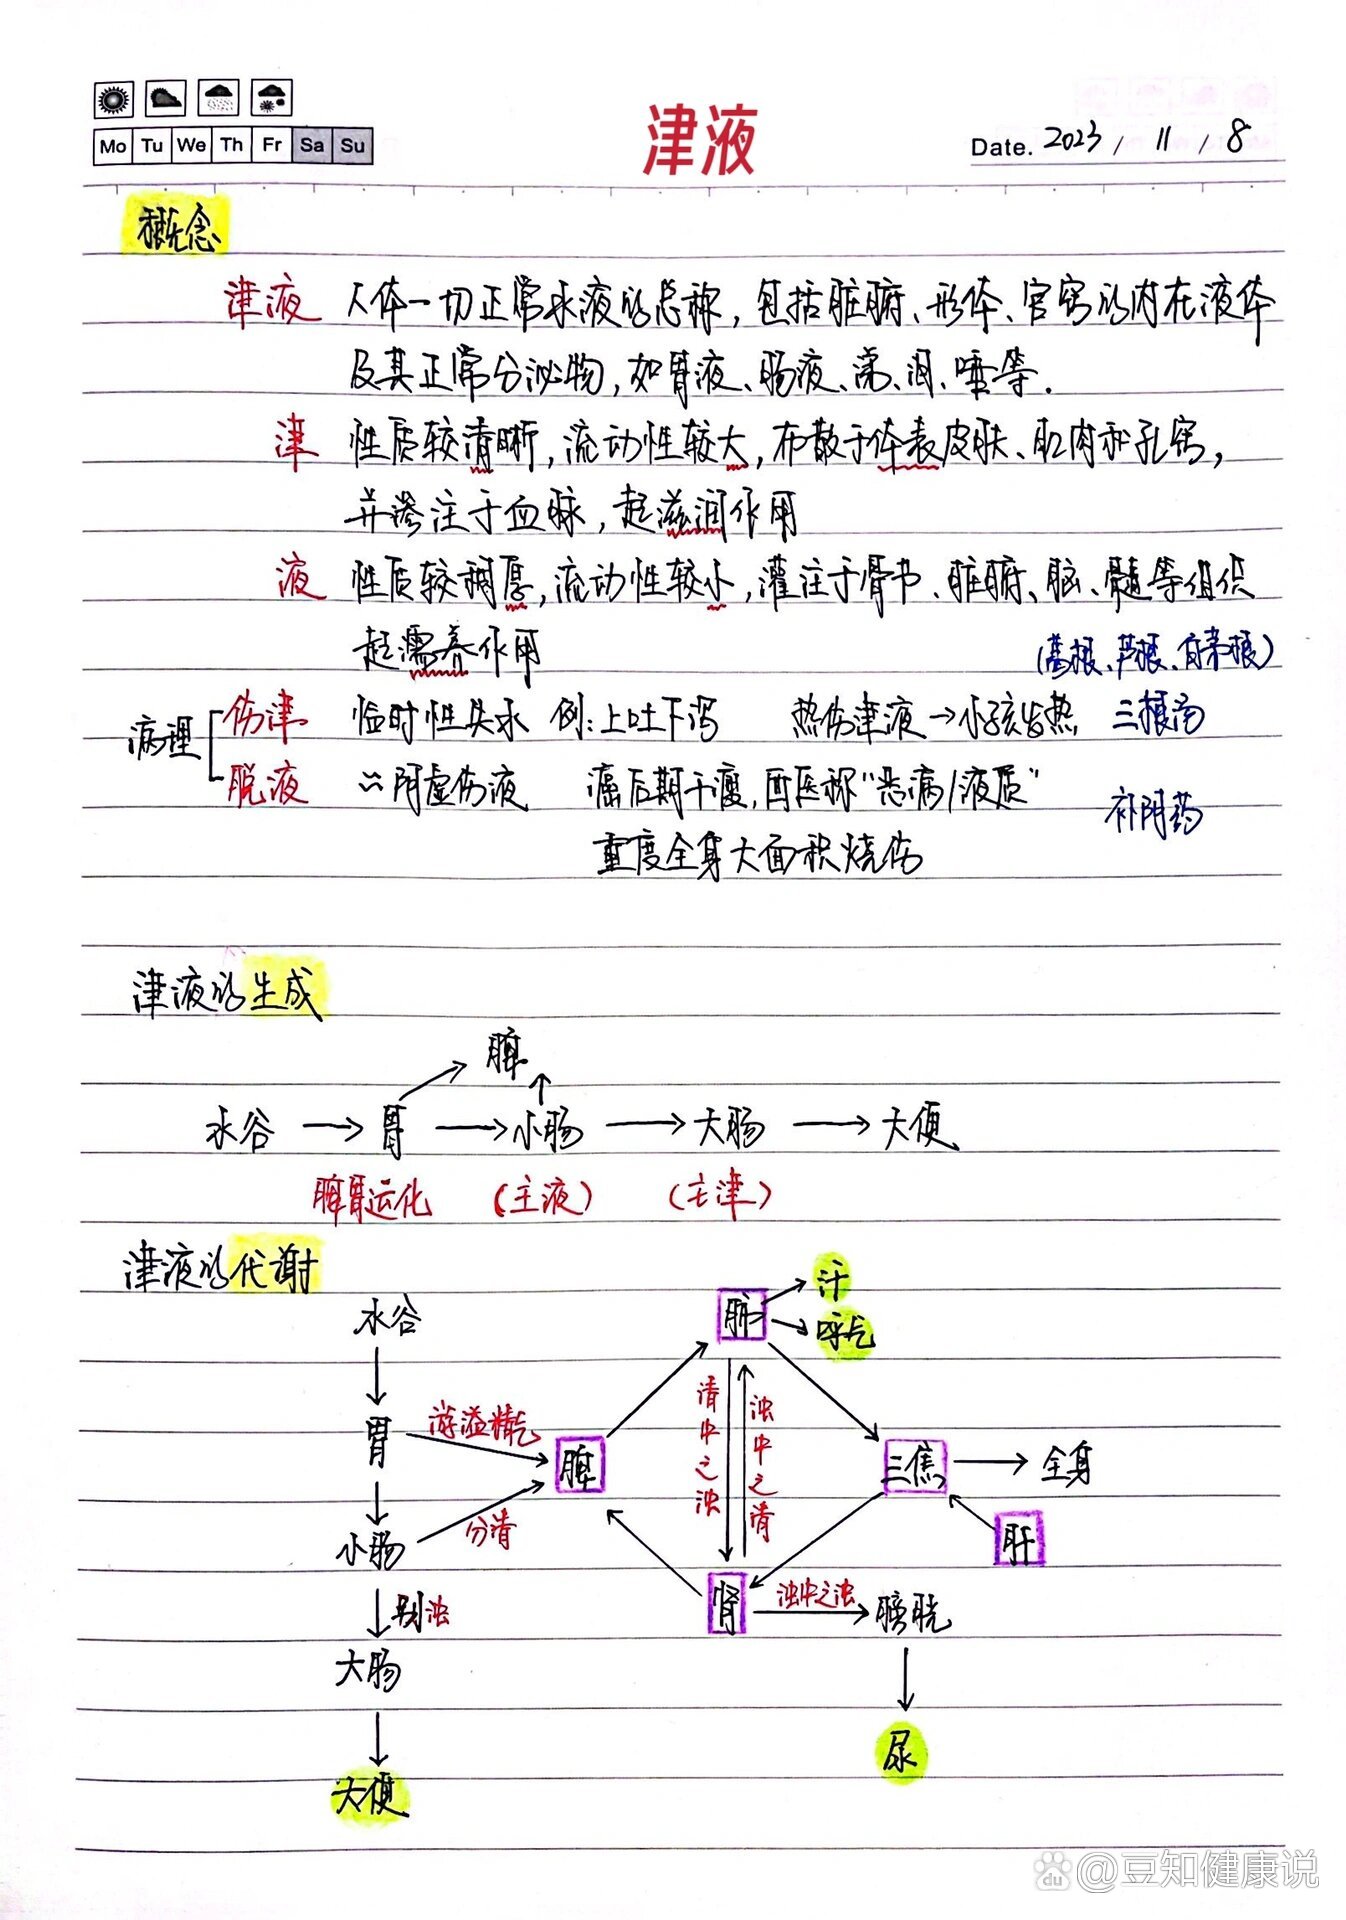 Mo Tu We Th Fr Sa Su
津液
Date. 2023 / 11 / 8
概念
津液 人体一切正常水液的总称，包括脏腑、形体、官窍的内在液体
及其正常分泌物，如胃液、肠液、涕、泪、唾等.
津 性质较清晰，流动性较大，布散于体表皮肤、肌肉和孔窍，
并渗注于血脉，起滋润作用
液 性质较稠厚，流动性较小，灌注于骨节、脏腑、脑、髓等组织
起濡养作用
(葛根、芦根、白茅根)
病理
伤津 临时性失水 例：上吐下泻 热伤津液→小孩发热，三根汤
脱液 ≈阴虚伤液 癌后期干瘦，西医称“恶病/液质”
补阴药
重度全身大面积烧伤
津液的生成
脾
水谷 → 胃 → 小肠 → 大肠 → 大便
脾胃运化 (主液) (主津)
津液的代谢
水谷
肺
汗
呼气
胃
游溢精气
脾
清中之浊
浊中之清
三焦
全身
小肠
分清
肝
别浊
肾
浊中之浊
膀胱
大肠
尿
大便
du @豆知健康说